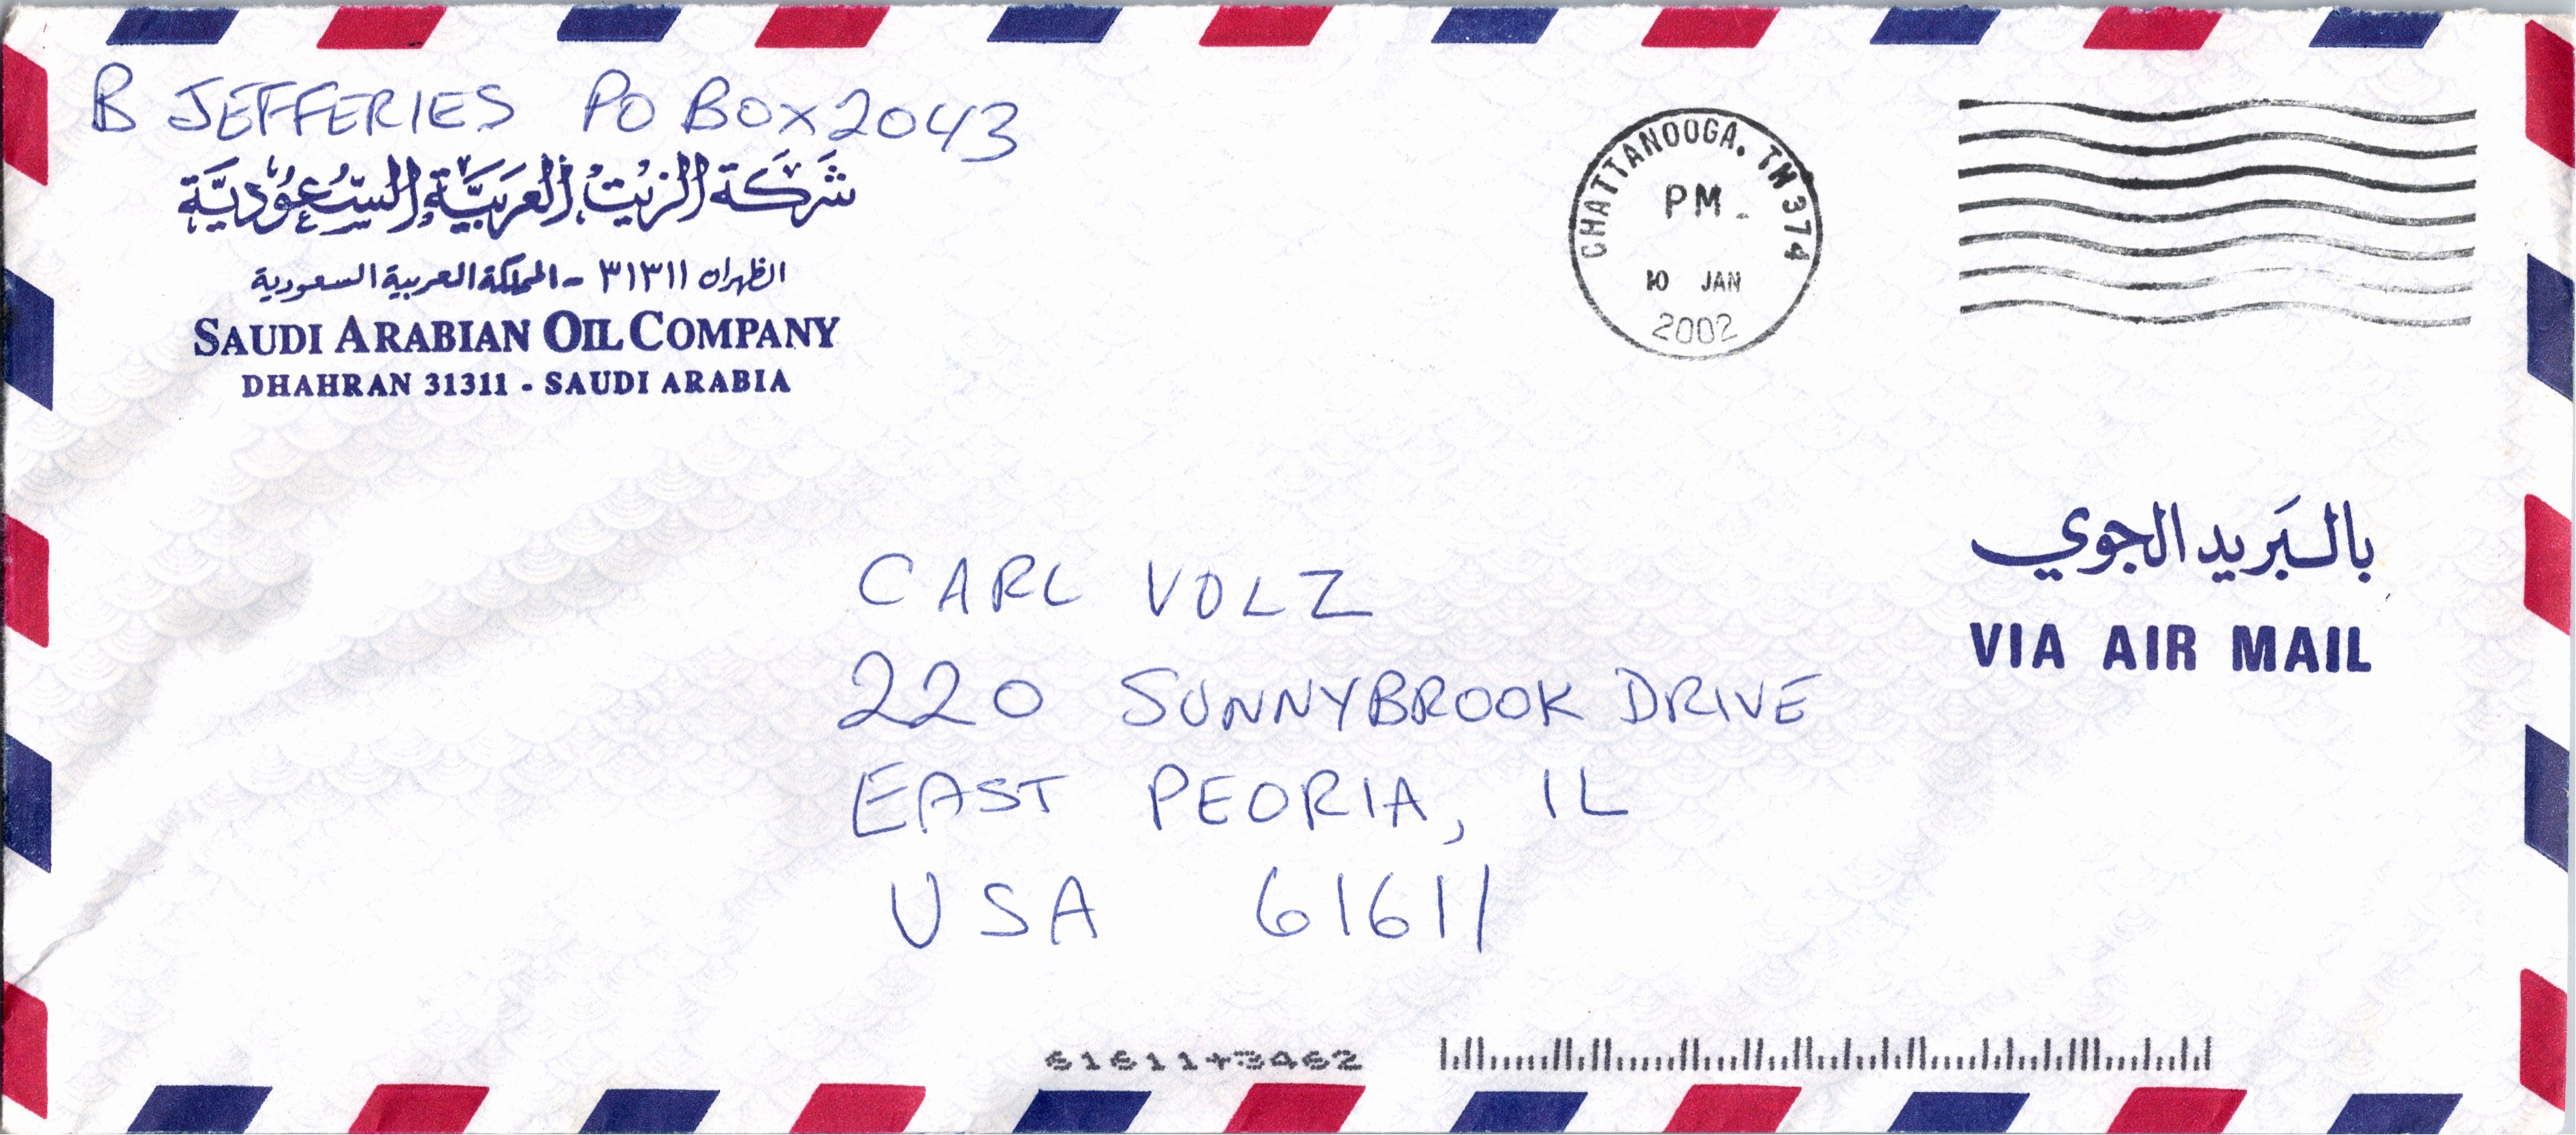 B JEFFERIES PO BOX 2043
شَركة الزيْت العَرَبيَّة السّعُوديَّة
الظهران ٣١٣١١ - المملكة العربية السعودية
SAUDI ARABIAN OIL COMPANY
DHAHRAN 31311 - SAUDI ARABIA
CHATTANOOGA. TN 374
PM
10 JAN
2002
بالبَريد الجوي
VIA AIR MAIL
CARL VOLZ
220 SUNNYBROOK DRIVE
EAST PEORIA, IL
USA 61611
61611+3462